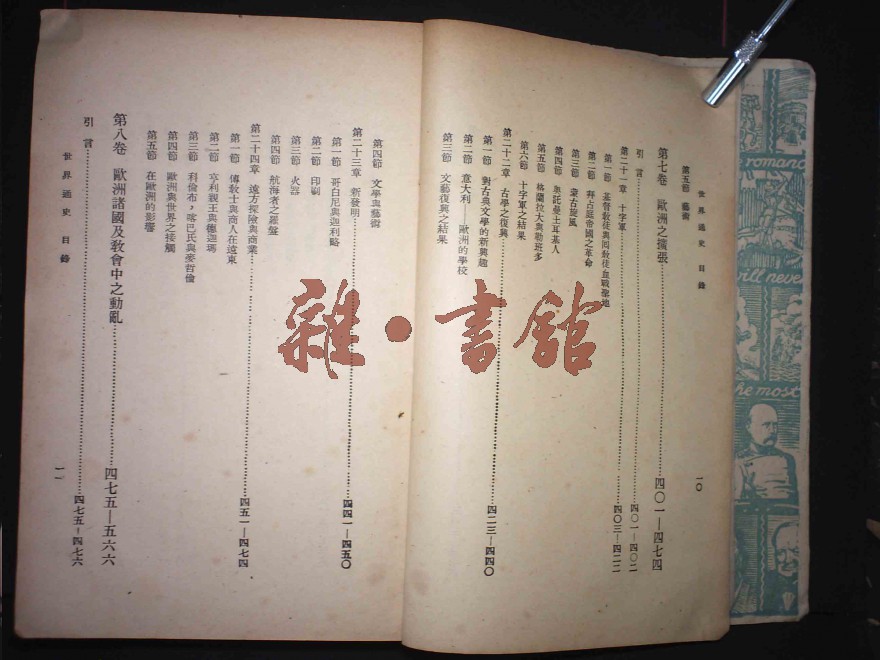 世界通史 目錄
一〇
第五節 藝術
第七卷 歐洲之擴張……四〇一—四七四
引言……四〇一—四〇二
第二十一章 十字軍……四〇三—四二二
第一節 基督教徒與回教徒血戰聖地
第二節 拜占庭帝國之革命
第三節 蒙古旋風
第四節 奧託曼土耳其人
第五節 格蘭拉大與勒班多
第六節 十字軍之結果
第二十二章 古學之復興……四二三—四四〇
第一節 對古典文學的新興趣
第二節 意大利——歐洲的學校
第三節 文藝復興之結果
第四節 文學與藝術
第二十三章 新發明……四四一—四五〇
第一節 哥白尼與迦利略
第二節 印刷
第三節 火器
第四節 航海者之羅盤
第二十四章 遠方探險與商業……四五一—四七四
第一節 傳敎士與商人在遠東
第二節 亨利親王與德迦瑪
第三節 科倫布,喀巴氏與麥哲倫
第四節 歐洲與世界之接觸
第五節 在歐洲的影響
第八卷 歐洲諸國及敎會中之動亂……四七五—五六六
引言……四七五—四七六
世界通史 目錄
一一
雜·書館
romanc
will neve
he most